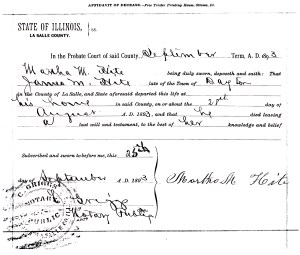 AFFIDAVIT OF DECEASE.—Free Trader Printing House, Ottawa, Ill.
STATE OF ILLINOIS,
LA SALLE COUNTY.
ss.
In the Probate Court of said County, September Term, A. D. 1893
Martha M. Hite being duly sworn, deposeth and saith: That
James M. Hite late of the Town of Dayton
in the County of La Salle, and State aforesaid departed this life at
his home in said County, on or about the 2nd day of
August A. D. 1893, and that he died leaving
a last will and testament, to the best of her knowledge and belief
Subscribed and sworn to before me, this 25th
day of September A. D. 1893
Martha M Hite
C. Griggs
Notary Public
C. GRIGGS
NOTARY
PUBLIC